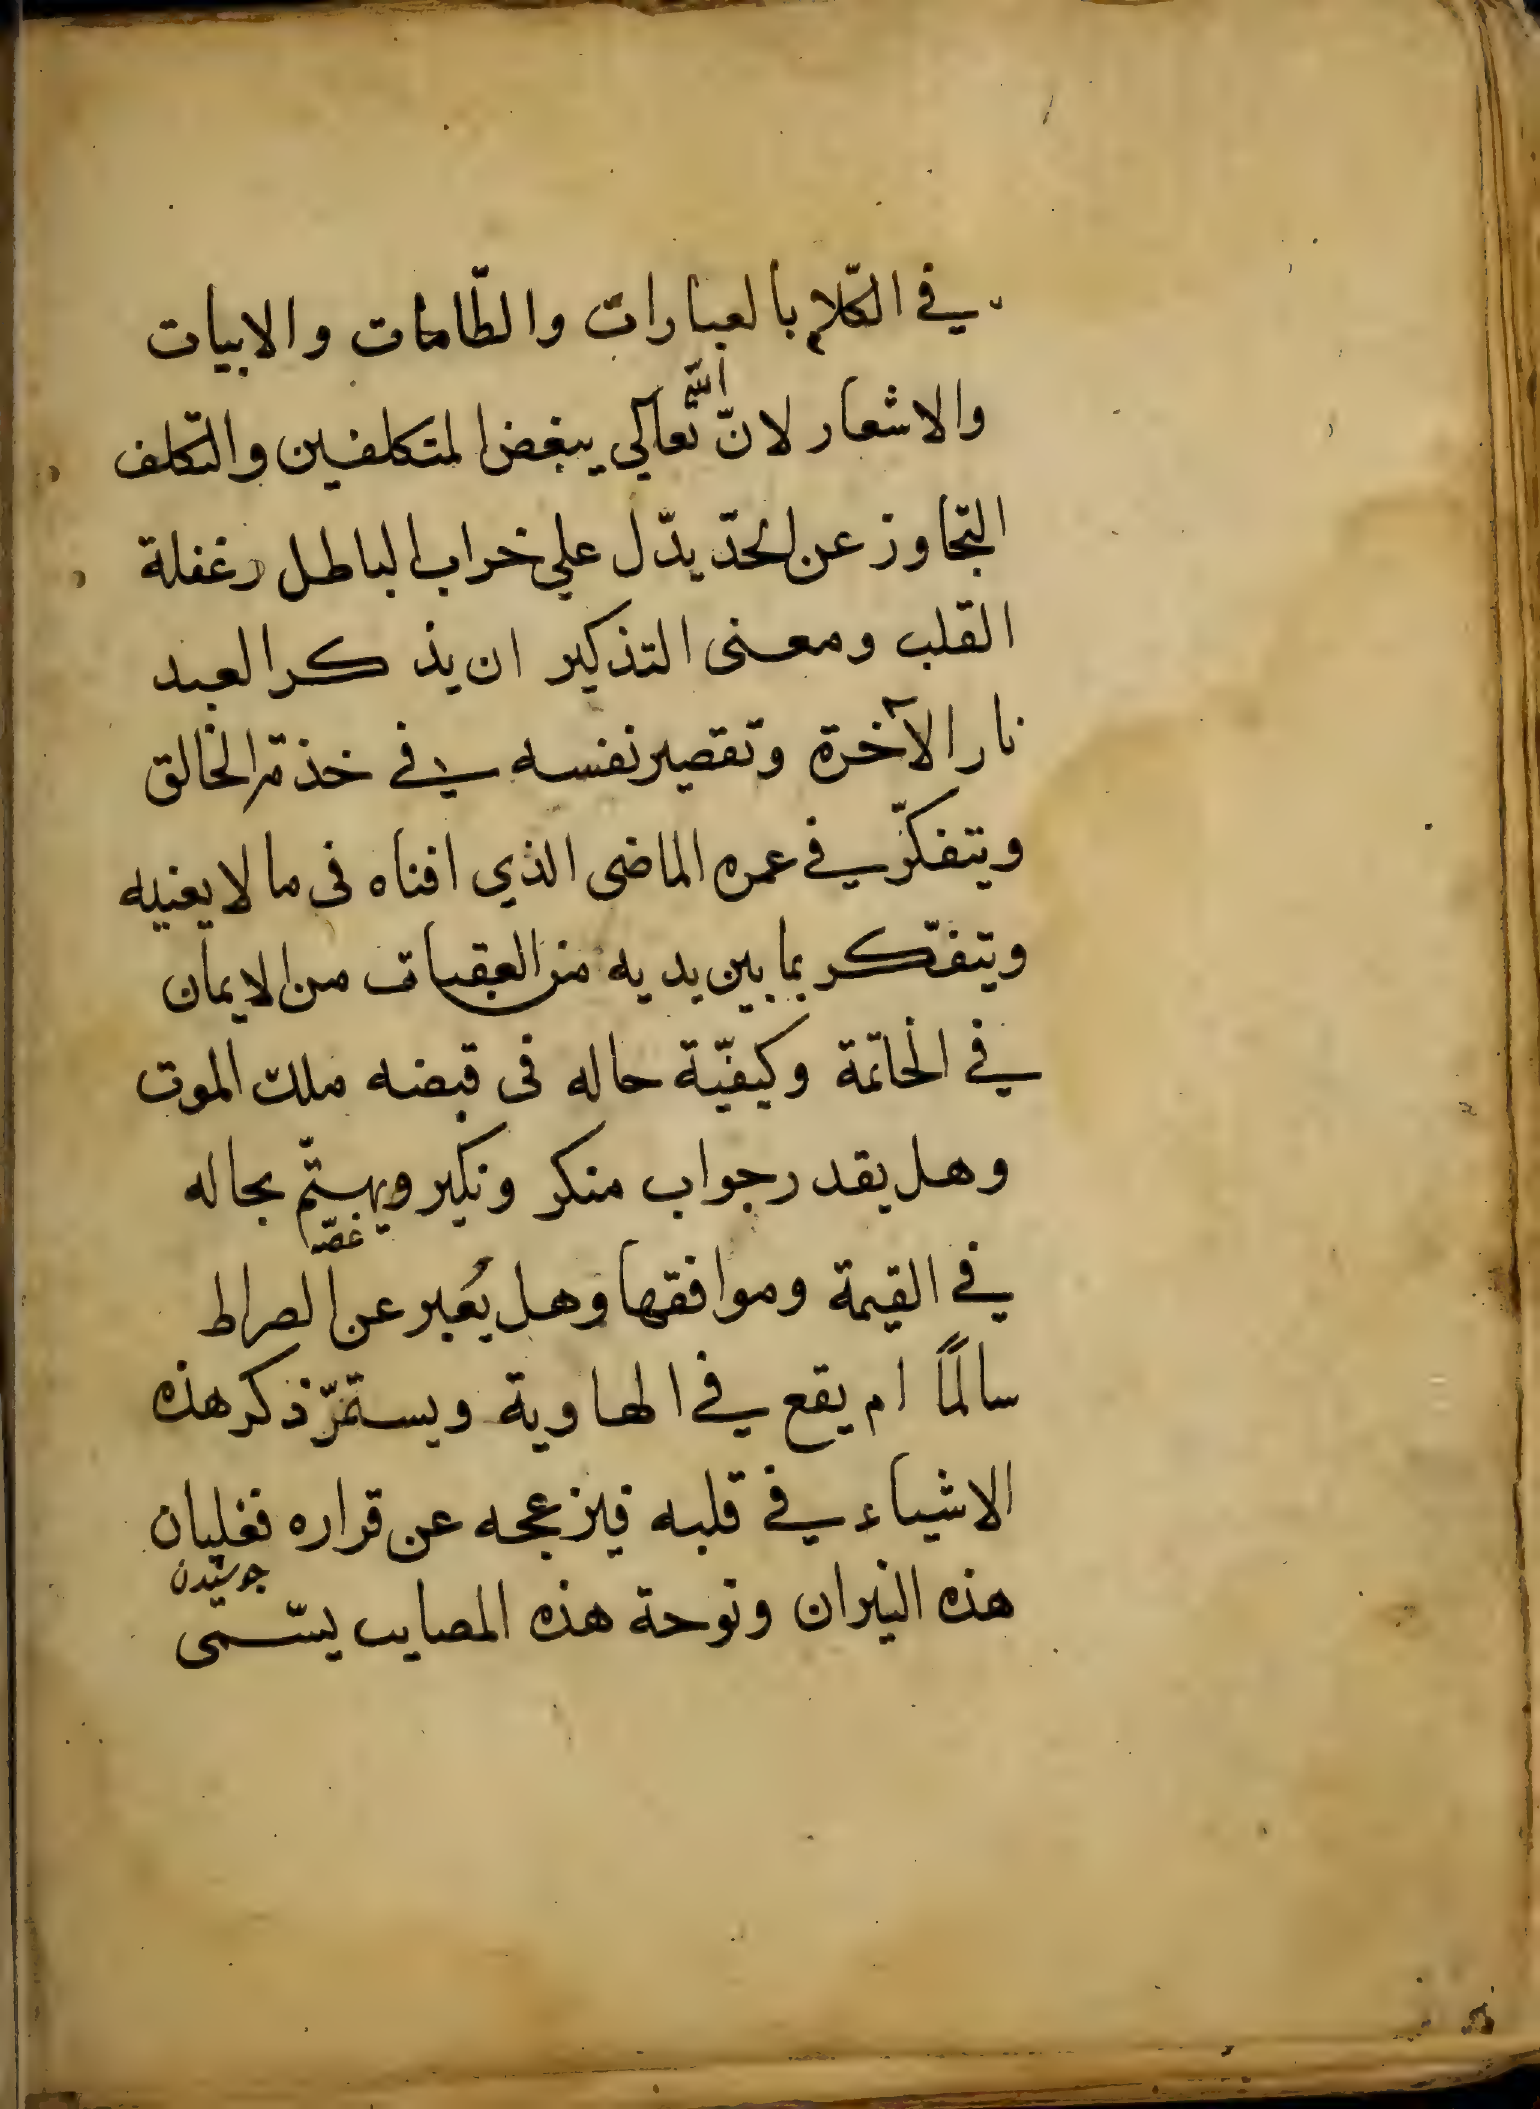 في الكّلام بالعبارات والطّامات والابيات
والاشعار لانّ الله تعالي يبغض المتكلفين والتكلف
التجاوز عن الحدّ يدّل علي خراب الباطل وغفلة
القلب ومعنى التذكير ان يذكر العبد
نار الآخرة وتقصير نفسه في خذمة الخالق
ويتفكّر في عمره الماضى الذي افناه فى ما لا يعنيه
ويتفّكر بما بين يديه من العقبات من الايمان
في الخاتمة وكيفيّة حاله فى قبضه ملك الموت
وهل يقدر جواب منكر ونكير ويهتمّ بحاله
غصّه
في القيمة وموافقها وهل يُعبر عن الصراط
سالمًا ام يقع في الهاوية ويستمرّ ذكر هذه
الاشياء في قلبه فيزعجه عن قراره فغليان
جوشیدن
هذه النيران ونوحة هذه المصايب يسّمى